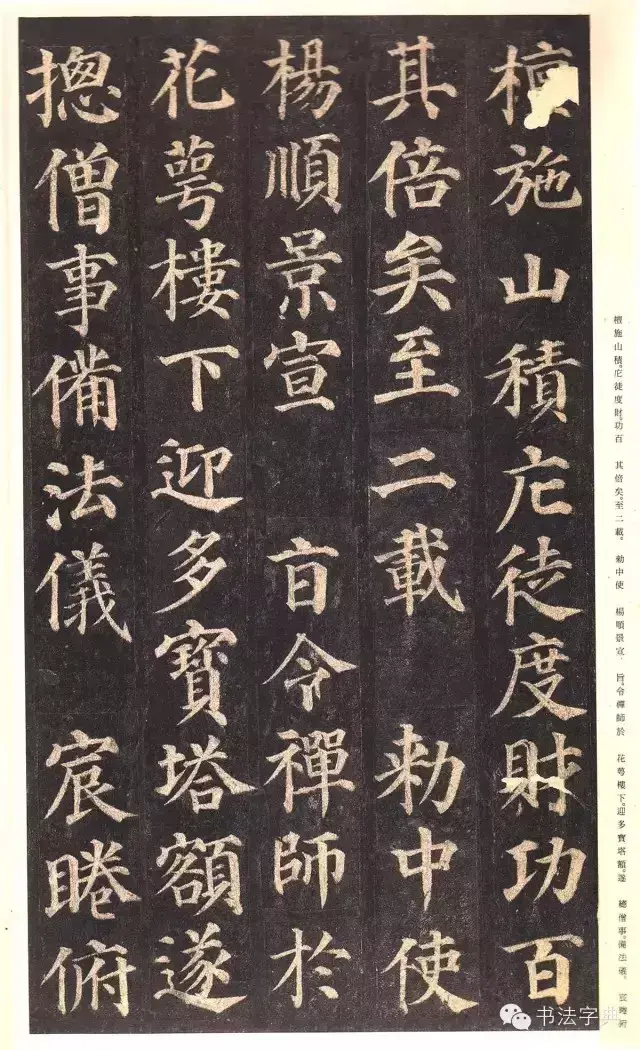 檀施山積庀徒度財功百
其倍矣至二載 勑中使
楊順景宣 旨令禪師於
花萼樓下迎多寶塔額遂
摠僧事備法儀 宸睠俯
檀施山積。庀徒度財。功百 其倍矣。至二載。 勑中使 楊順景宣 旨。令禪師於 花萼樓下。迎多寶塔額。遂 總僧事。備法儀。 宸睠俯
书法字典